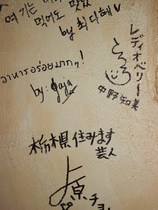 여기는
먹어도 맛있
by 최다혜
レディオベリー
とろろ
中野知美
อาหารอร่อยมากๆ!
by:
栃木県住みます
芸人
上原チョ